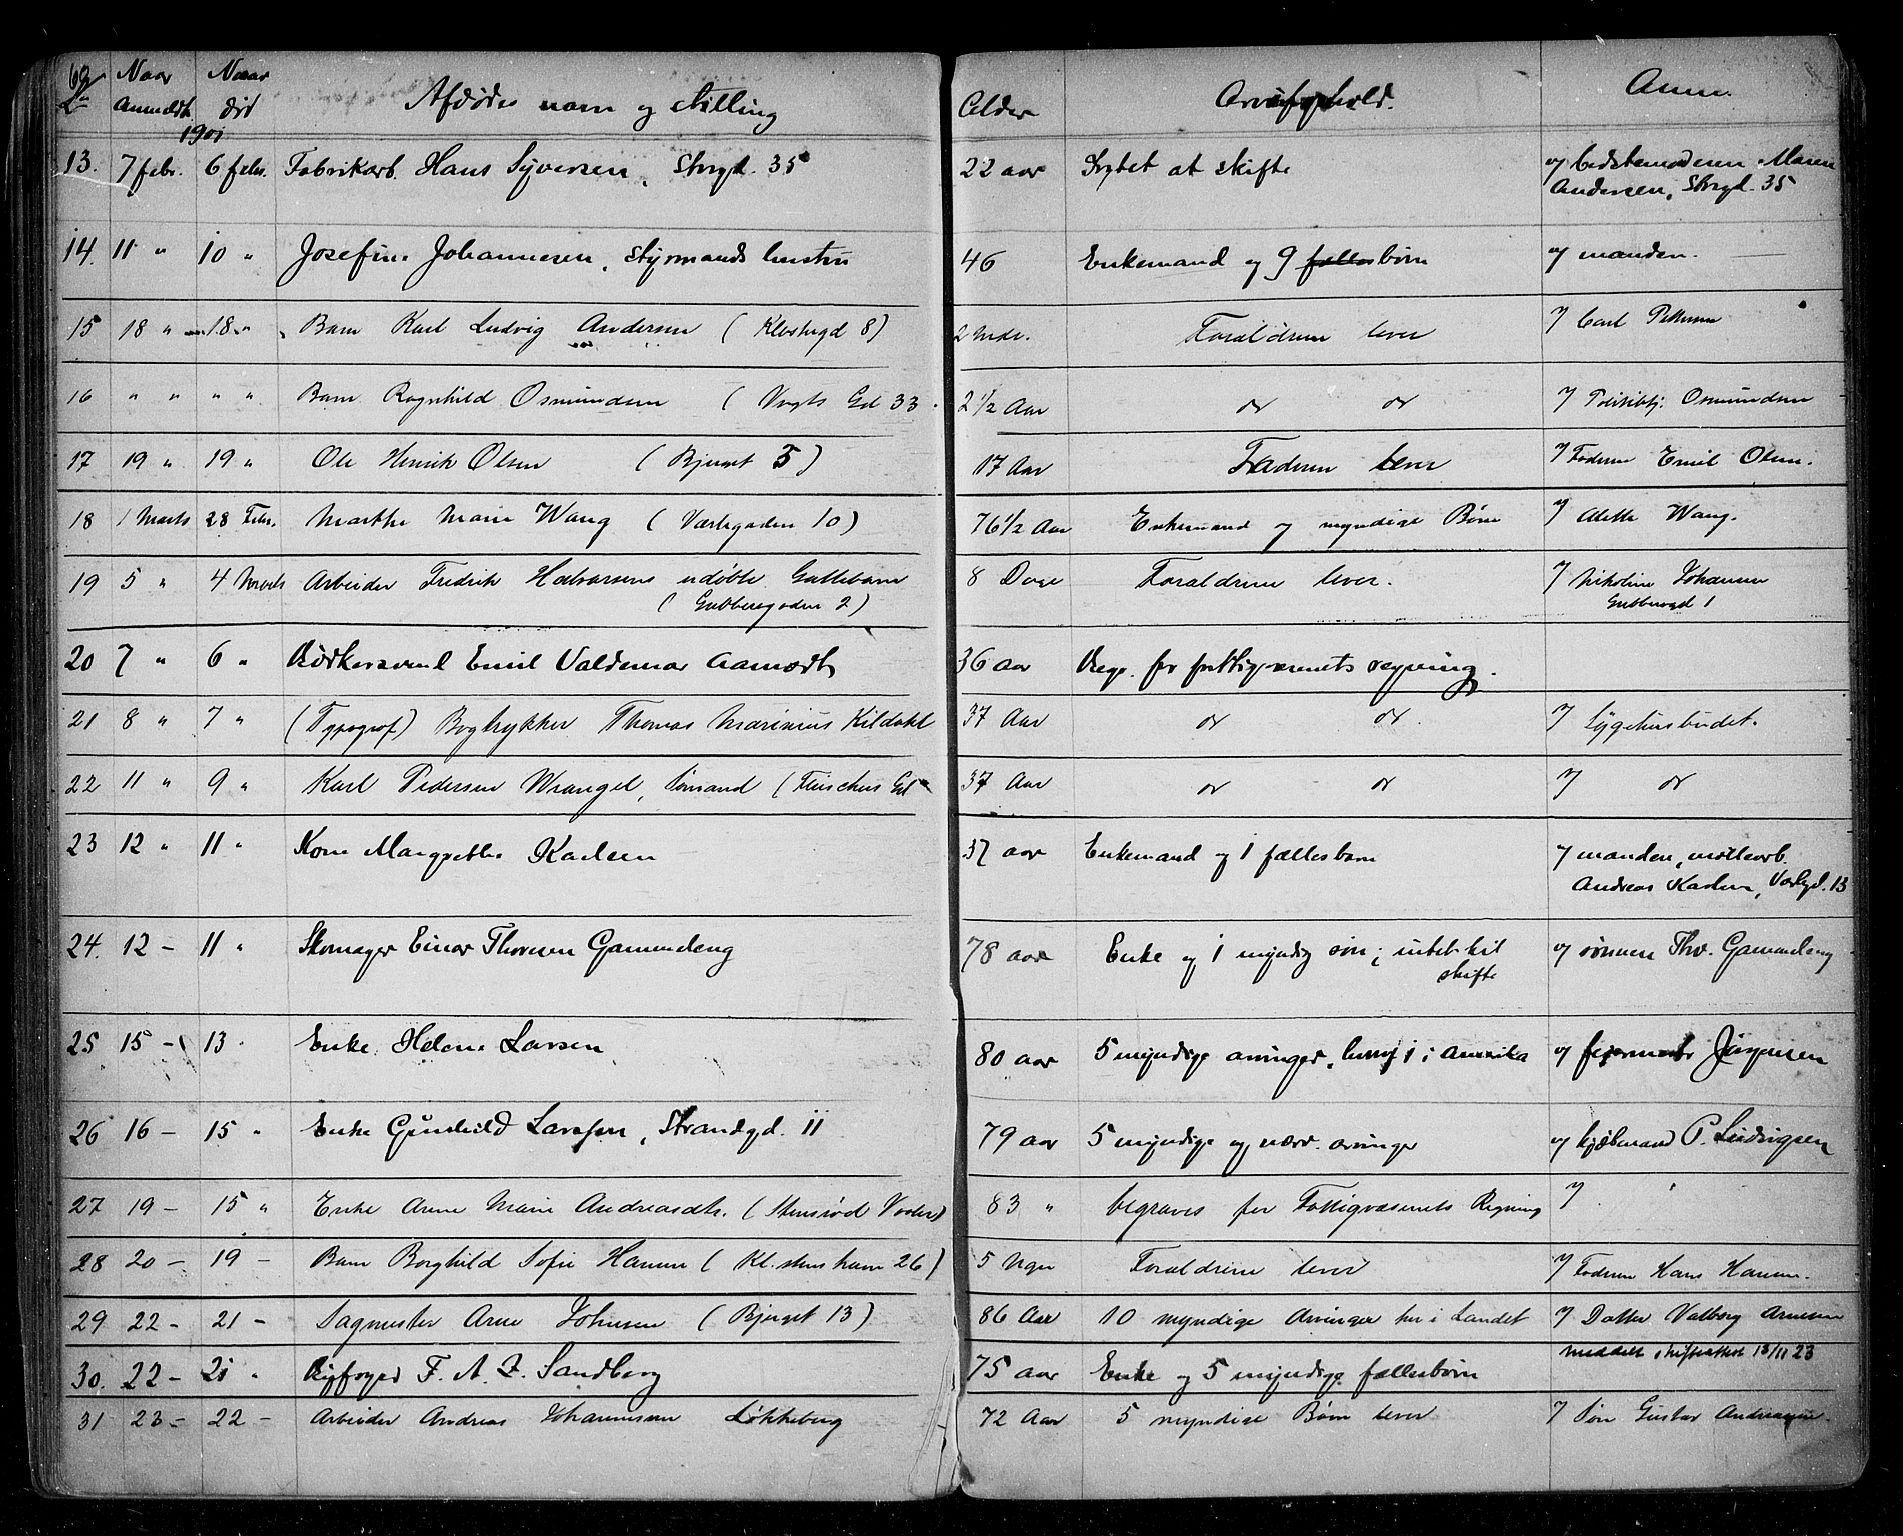 69
Lnr Naar Anmeldt Naar død Afdødes navn og stilling Alder Arveforhold. Anm.
1901
13. 7 febr. 6 febr. Fabrikarb. Hans Syversen, Storgd. 35 22 aar Intet at skifte og bedstemoderen Maren
Andersen, Storgd. 35
14. 11 " 10 " Josefine Johannesen, Styrmands hustru 46 Enkemand og 9 fællesbørn og manden. —
15 18 " 18 " Barn Karl Ludvig Andersen (Klostergd 8) 2 Mdr. Forældrene lever 7 Carl Pettersen
16 " " " " Barn Ragnhild Osmundsen (Vogts Gd 33 2 1/2 Aar do do 7 Politibtj. Osmundsen
17 19 " 19 " Ole Henrik Olsen (Bjerget 5) 17 Aar Faderen lever 7 Faderen Emil Olsen.
18 1 Marts 28 Febr. Marthe Marie Wang (Værlegaden 10) 76 1/2 Aar Enkemand og myndige Børn 7 Alette Wang.
19 5 " 4 Marts Arbeider Fredrik Halvorsens udøbte Guttebarn 8 Dage Forældrene lever. 7 Nikoline Johansen
(Gubberogaden 2) Gubberogd 1
20 7 " 6 " Bødkersvend Emil Valdemar Aamodt 36 aar Begr. for fattigvæsenets regning.
21 8 " 7 " (Typograf) Bogtrykker Thomas Marinius Kildahl 37 Aar do do. 7 Sygehusbudet.
22 11 " 9 " Karl Pedersen Wrangel, Sømand ( Gd 37 Aar do do 7 do
23 12 " 11 " Kone Margrethe Karlsen 37 aar Enkemand og 1 fællesbarn og manden, møllearb.
Andreas Karlsen, Værlegd. 13
24. 12 - 11 " Skomager Einar Thoresen Gammeleng 78 aar Enke og 1 myndig søn; intet til og sønnen Thv. Gammeleng
skifte
25 15 - 13 " Enke Helene Larsen 80 aar 5 myndige arvinger, hvoraf 1 i Amerika og feiermester Jørgensen
26 16 - 15 " Enke Gunhild Larssen, Strandgd. 11 79 aar 5 myndige og nærv. arvinger og kjøbmand P. Ludvigsen
27 19 - 15 " Enke Anne Marie Andreasdtr. (Stensrød Vaaler) 83 " begraves for Fattigvæsenets Regning 7
28 20 - 19 - Barn Borghild Sofie Hansen (Kl. stens havn 26) 5 Uger Forældrene lever 7 Faderen Hans Hansen.
29 22 - 21 - Sagmester Arne Johnsen (Bjerget 13) 86 Aar 10 myndige Arvinger her i Landet 7 Datter Valborg Arnesen
Meddelt skifteattest 13/11 23
30. 22 - 21 " Byfoged F. A. Z. Sandberg 75 aar Enke og 5 myndige fællesbørn
31 23 - 22 - Arbeider Andreas Johannesen Løkkeberg 72 Aar 5 myndige Børn lever 7 Søn Gustav Andreasen.